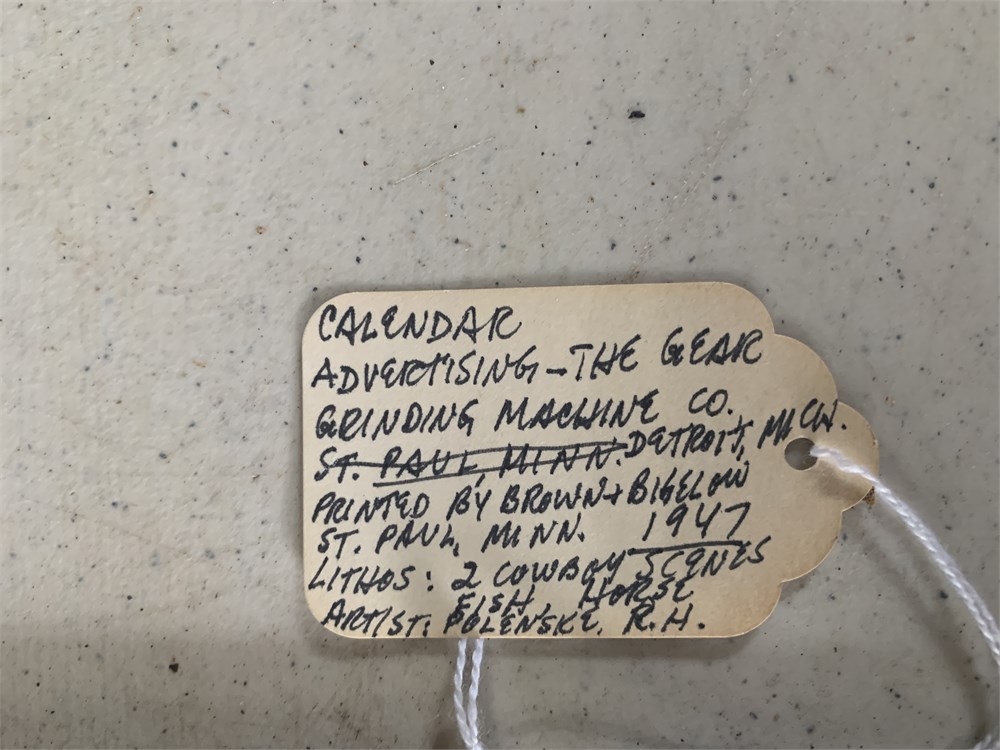 CALENDAR
ADVERTISING - THE GEAR
GRINDING MACHINE CO.
ST. PAUL, MINN. DETROIT, MICH.
PRINTED BY BROWN + BIGELOW
ST. PAUL, MINN. 1947
LITHOS: 2 COWBOY SCENES
FISH, HORSE
ARTIST: POLENSKE, R.H.